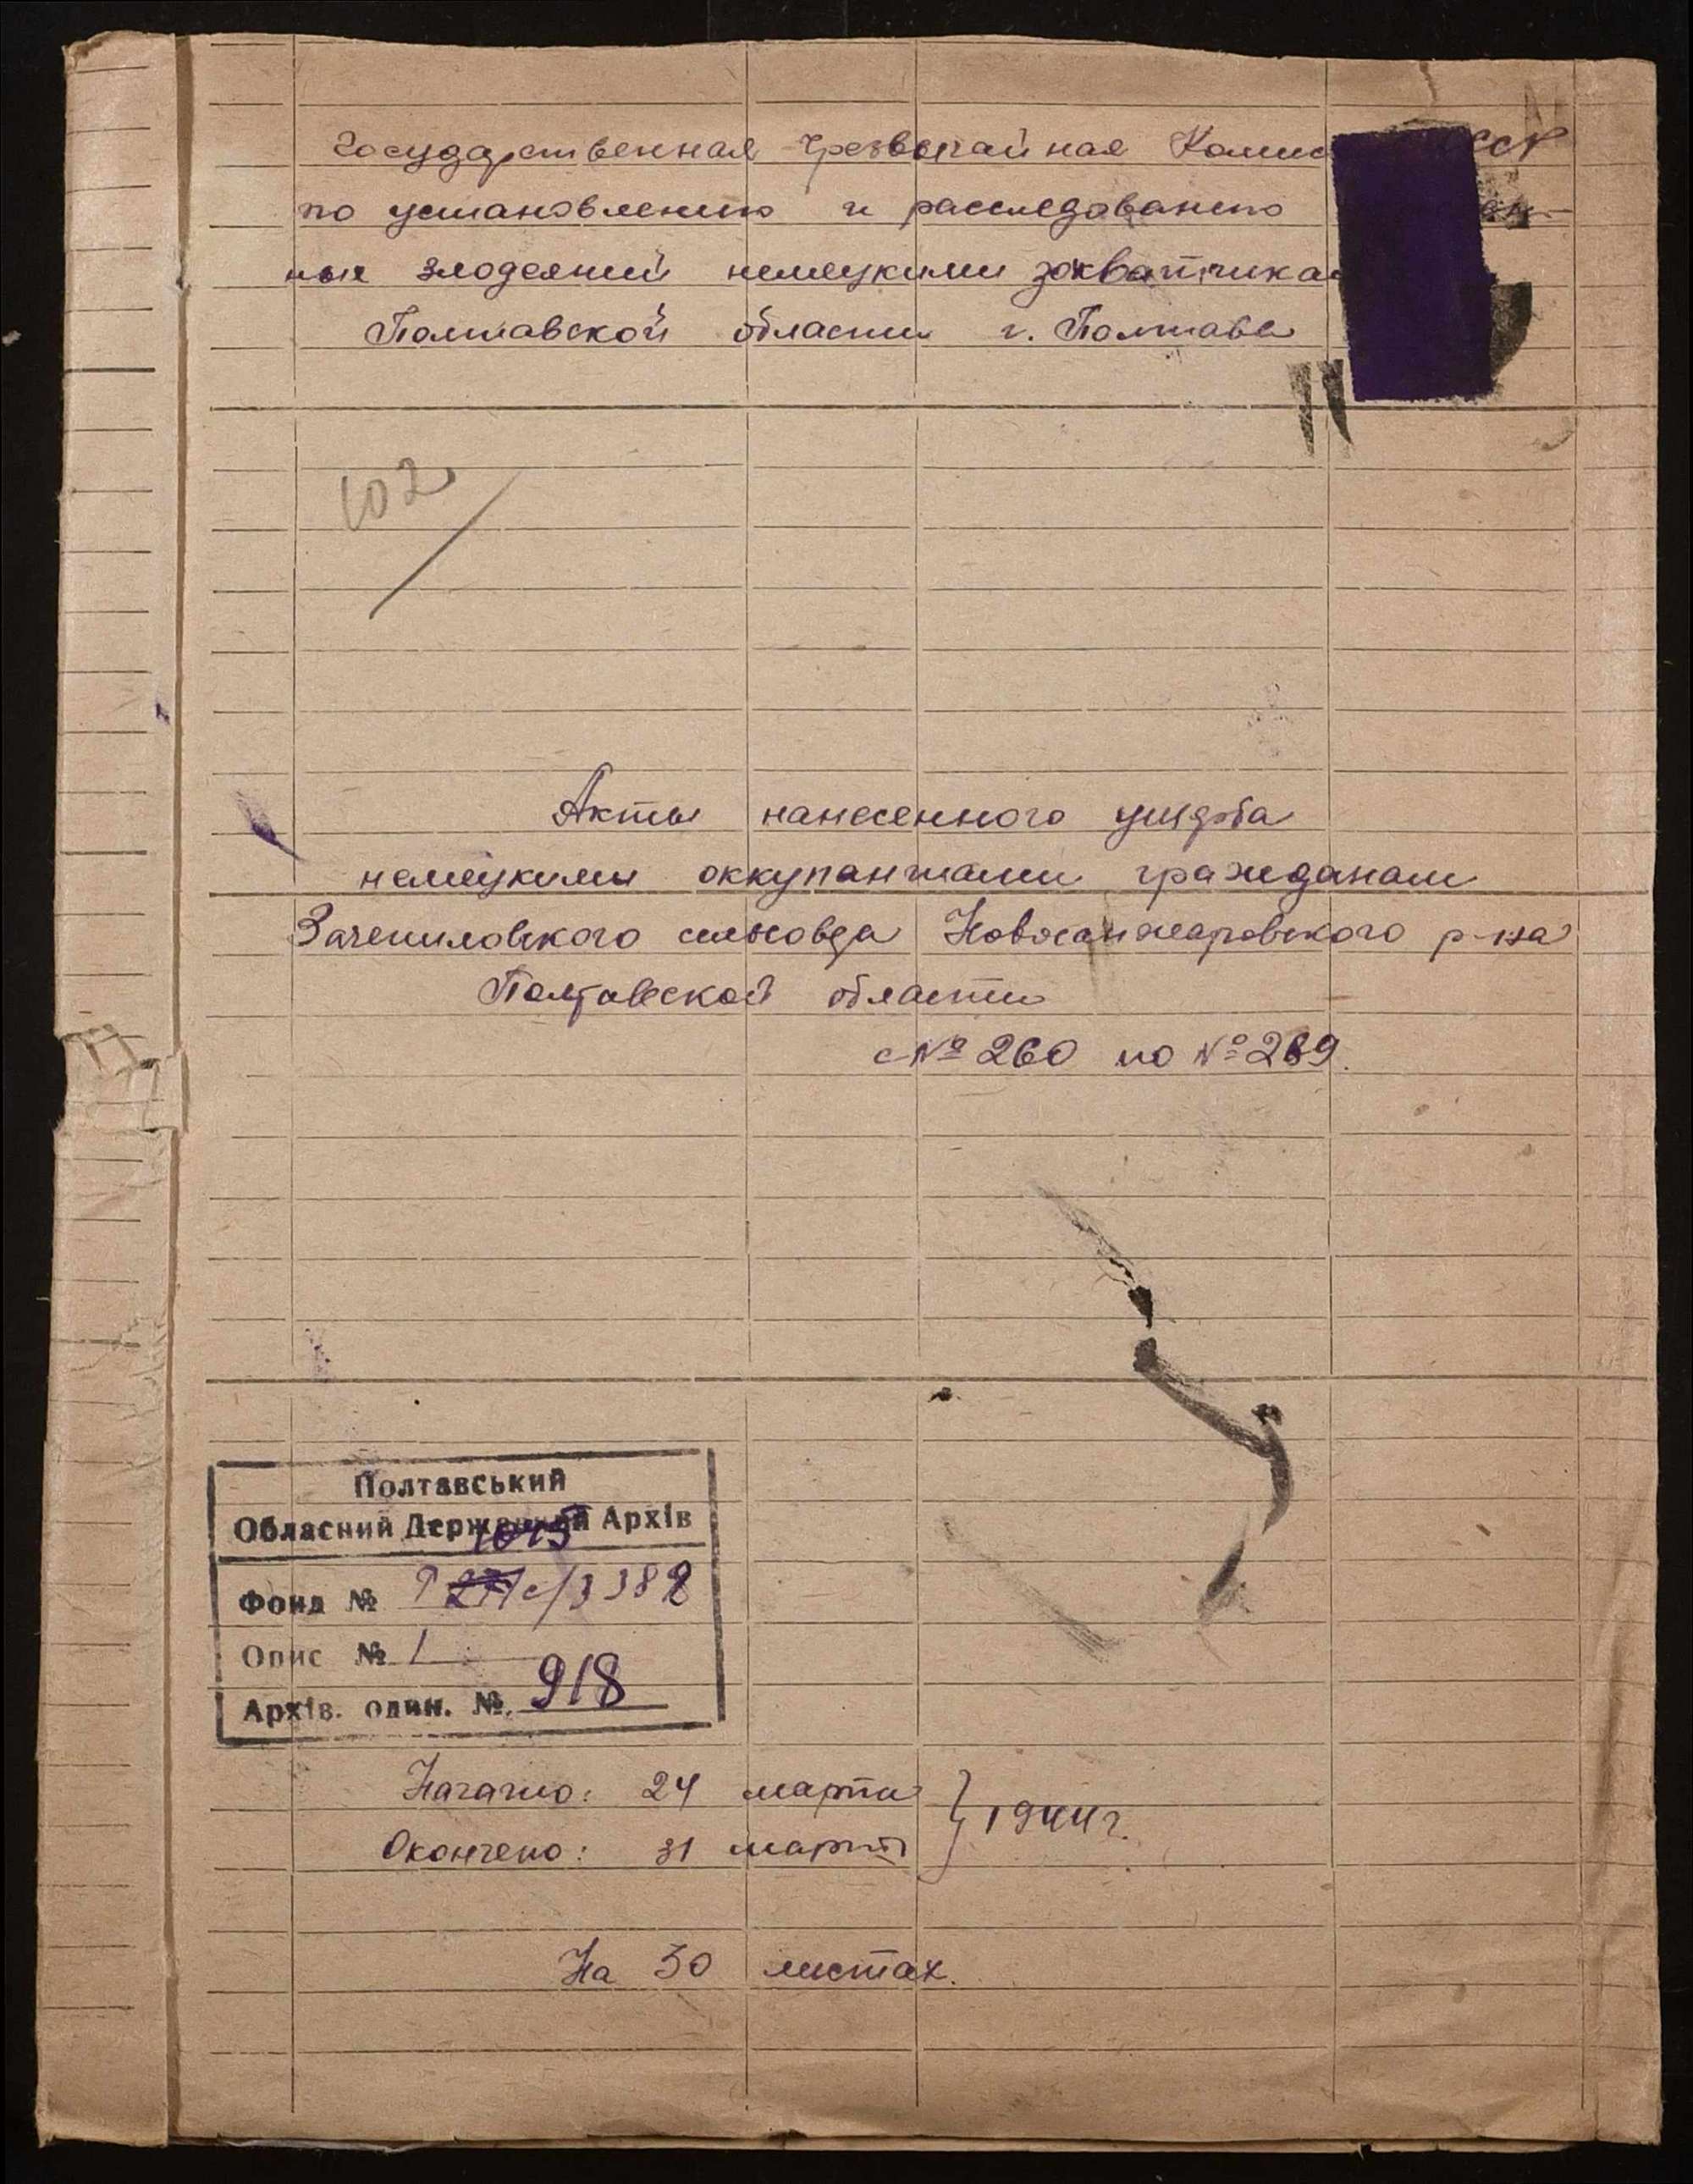 Государственная Чрезвычайная Комис ССР
по установлению и расследованию
ных злодеяний немецкими захватчика
Полтавской области г. Полтава
102
Акты нанесенного ущерба
немецкими оккупантами гражданам
Зачепиловского сельсовда Новосанжаровского р-на
Полтавской области
с № 260 по № 289.
Полтавський
Обласний Державний Архів
1045
Фонд № Р с/3388
Опис № 1
Архів. один. №. 918
Начато: 24 марта
} 1944 г.
Окончено: 31 марта
На 30 листах.